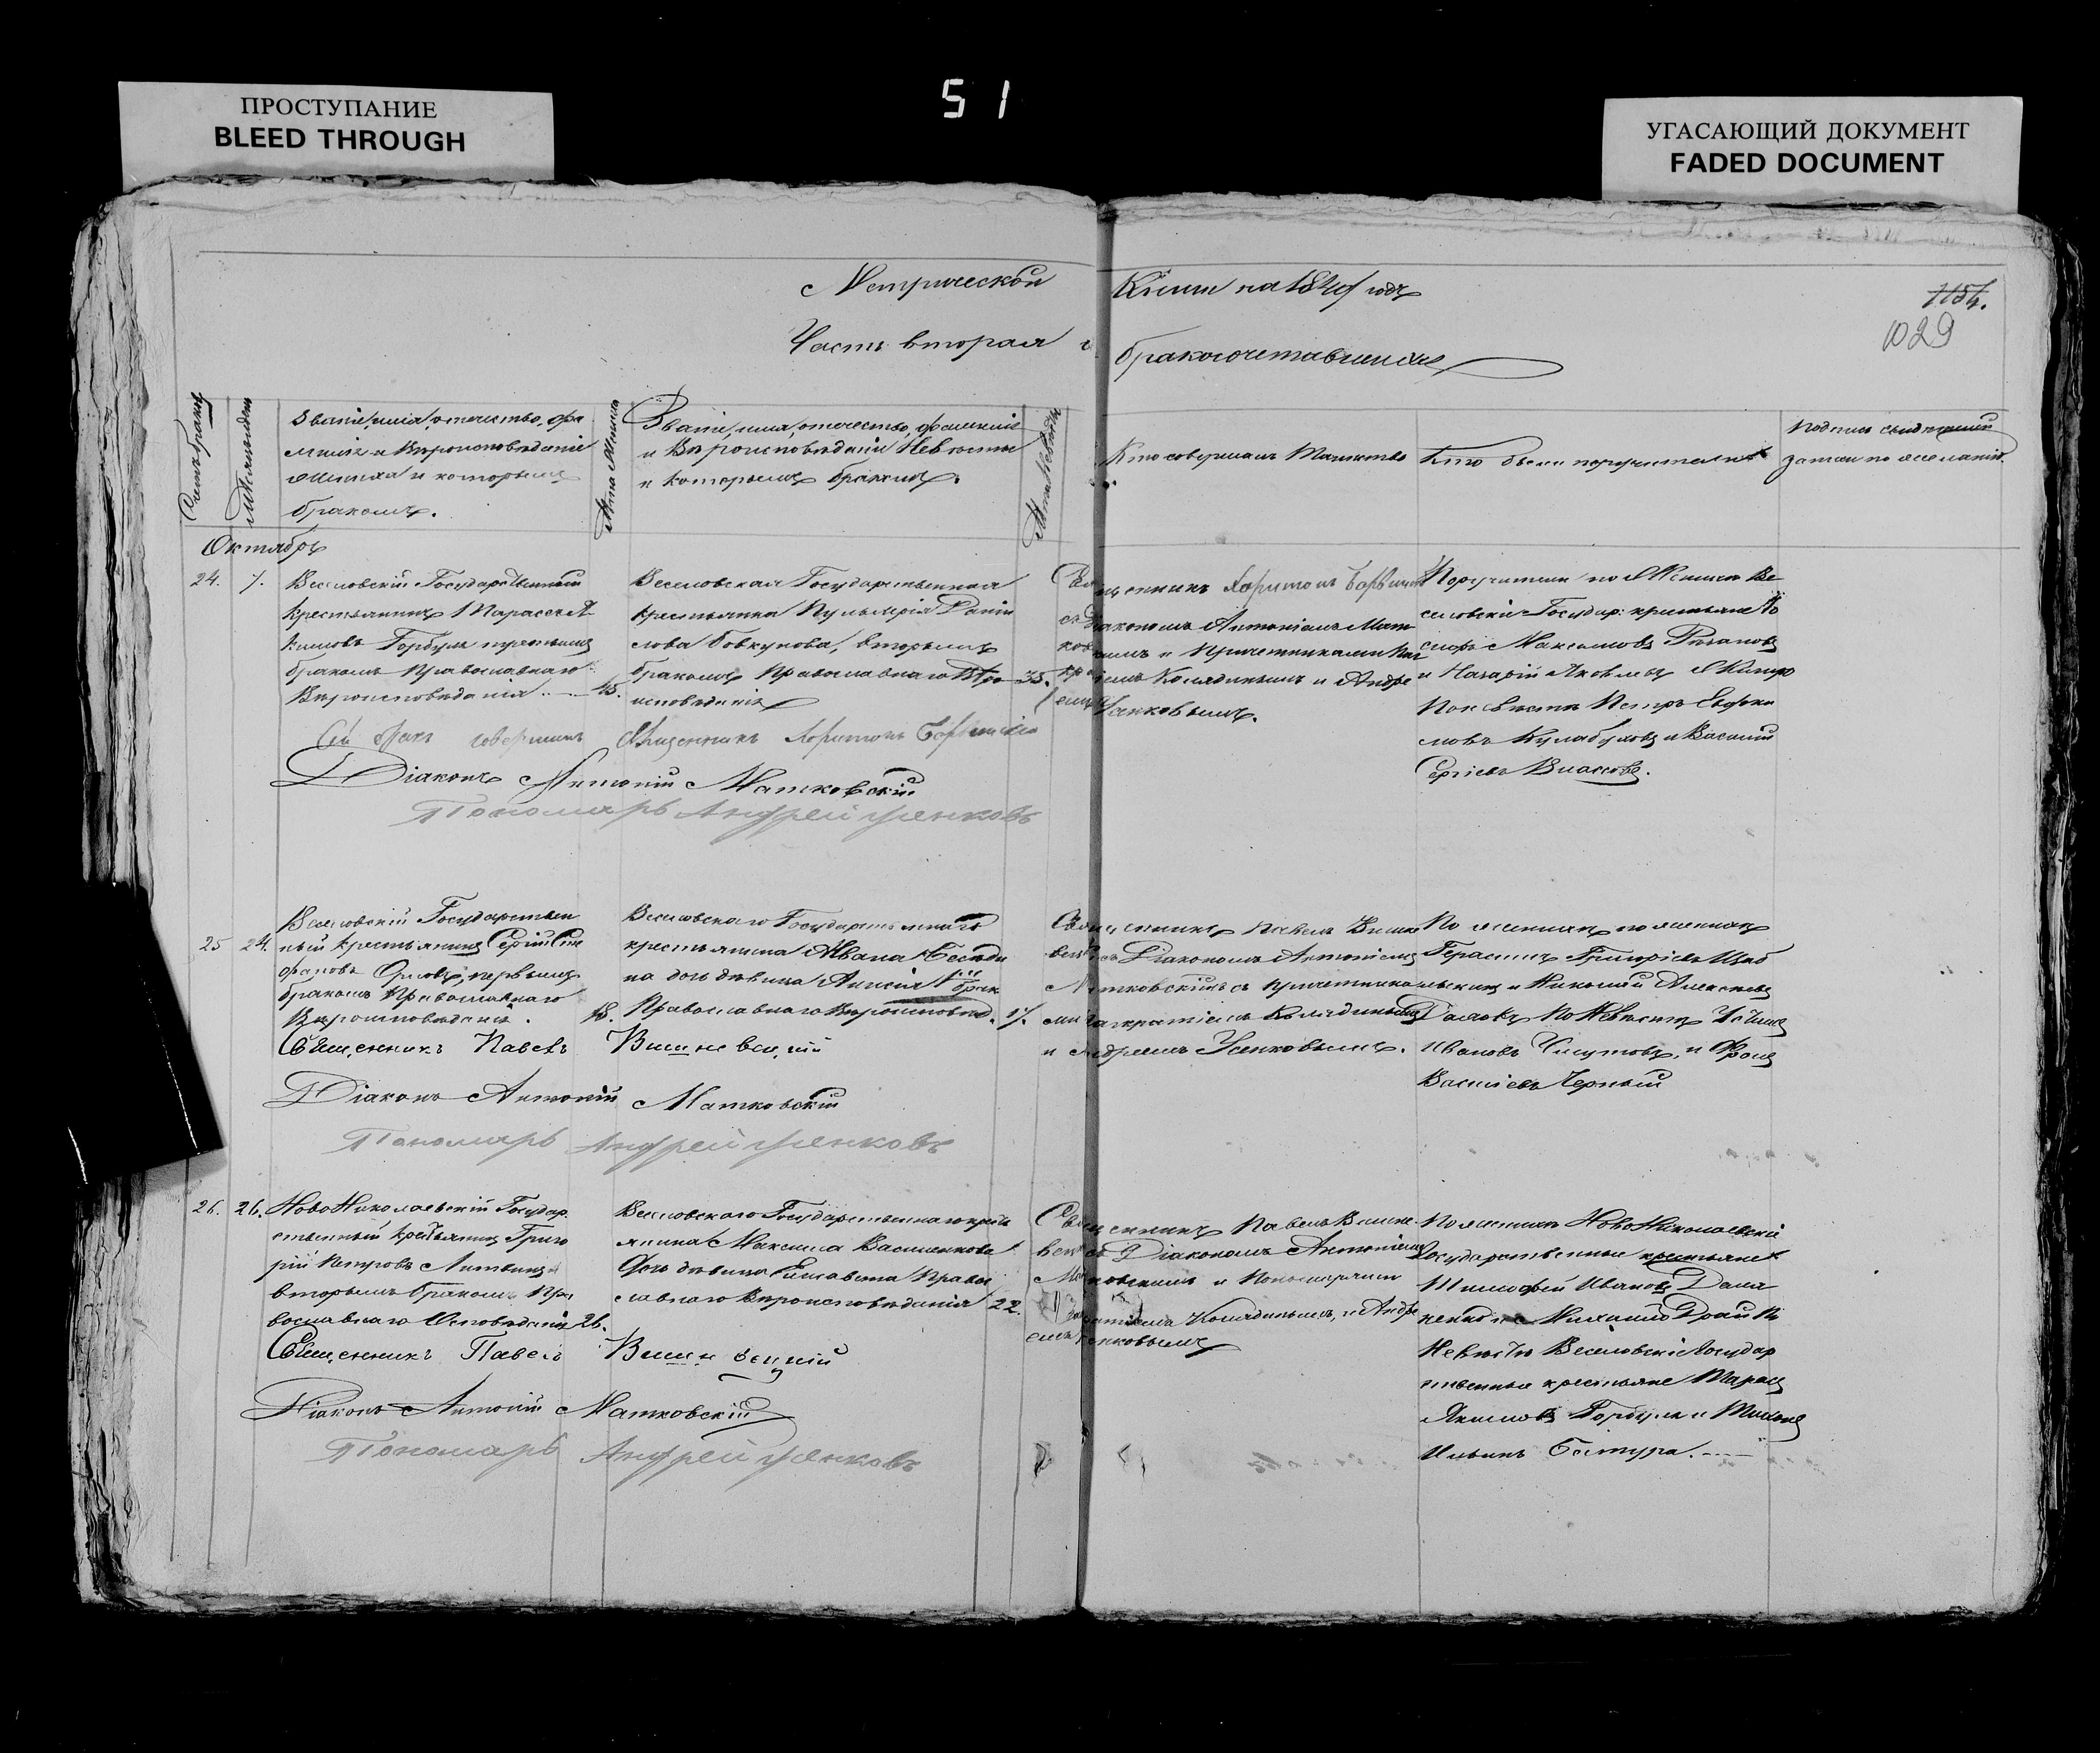 51
ПРОСТУПАНИЕ
BLEED THROUGH
УГАСАЮЩИЙ ДОКУМЕНТ
FADED DOCUMENT
Метрической Книги на 184 годъ
1154.
1029
Часть вторая о бракосочетавшихся
Счетъ браковъ
Званіе, имя, отечество, фа
миліе и Вѣроисповѣданіе
жениха и которымъ
бракомъ.
Лѣта жениха
Званіе, имя, отечество, фамиліе
и Вѣроисповѣданіе Невѣсты
и которымъ бракомъ.
Лѣта Невѣсты
Кто совершалъ Таинство
Кто были поручители
подпись свидетелей
записи по желанію.
Октябрь
24. 7.
Веселовскій Государственный
крестьянинъ Тарассъ А
кимовъ Горбуля третьимъ
бракомъ Православнаго
Вѣроисповѣданія 45.
Веселовская Государственная
крестьянка Пульхерія Дани
лова Бовкунова, вторымъ
бракомъ Православнаго Вѣро
исповѣданія 35.
Священникъ Харитонъ
съ Діакономъ Антоніемъ Мат
ковскимъ и Причетниками Пан
кратіемъ Колядинымъ и Андре
емъ Усенковымъ.
Поручители по Женихѣ Ве
селовскіе Государ: крестьяне
Максимовъ
и Назарій Яковлевъ
По невѣстѣ Петръ Евфи
мовъ Кулабуховъ и Василій
Сергіевъ Власовъ.
Сей бракъ совершилъ Священникъ Харитонъ
Діаконъ Антоній Матковскій
Пономарь Андрей Усенковъ
25 24.
Веселовскій Государствен
ный крестьянинъ Сергій Сте
фановъ Орловъ, первымъ
бракомъ Православнаго
Вѣроисповѣданія. 18.
Веселовскаго Государственнаго
крестьянина Ивана
на дочь дѣвица Анисія 1 брак
Православнаго Вѣроисповѣд. 17.
Священникъ Павелъ Вишне
вецкій съ Діакономъ Антоніемъ
Матковскимъ съ причетника
ми Панкратіемъ Колядинымъ
и Андреемъ Усенковымъ.
По женихѣ поселяне
Герасимъ Григорьевъ
и Николай Алексѣевъ
По Невѣстѣ
Ивановъ и
Василіевъ Черный
Священникъ Павелъ Вишневецкій
Діаконъ Антоній Матковскій
Пономарь Андрей Усенковъ
26. 26.
НовоНиколаевскій Государ
ственный крестьянинъ Григо
рій Петровъ Литвинъ
вторымъ бракомъ Пра
вославнаго Исповѣданія 26.
Веселовскаго Государственнаго кресть
янина Максима Василенкова
Дочь дѣвица Елисавета Право
славнаго Вѣроисповѣданія 22.
Священникъ Павелъ Вишне
вецкій съ Діакономъ Антоніемъ
Матковскимъ и Пономарями
Панкратіемъ Колядинымъ, и Андре
емъ Усенковымъ
По женихѣ НовоНиколаевскіе
Государственные крестьяне
Тимофей Ивановъ
и Михайло
Невѣстѣ Веселовскіе Государ
ственные крестьяне Тарасъ
Якимовъ Горбуля и
Ильинъ
Священникъ Павелъ Вишневецкій
Діаконъ Антоній Матковскій
Пономарь Андрей Усенковъ